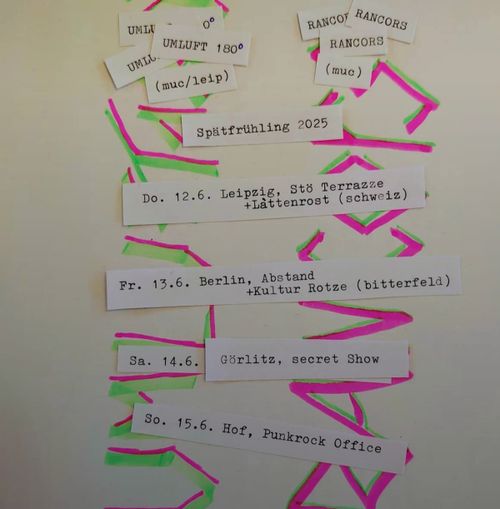 UMLU 0°
UMLUFT 180°
UMLU
(muc/leip)
RANCORS
RANCORS
RANCORS
(muc)
Spätfrühling 2025
Do. 12.6. Leipzig, Stö Terrazze
+Låttenrost (schweiz)
Fr. 13.6. Berlin, Abstand
+Kultur Rotze (bitterfeld)
Sa. 14.6. Görlitz, secret Show
So. 15.6. Hof, Punkrock Office